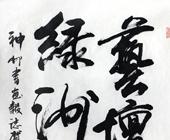 藝壇
綠洲
神州書畫報誌賀